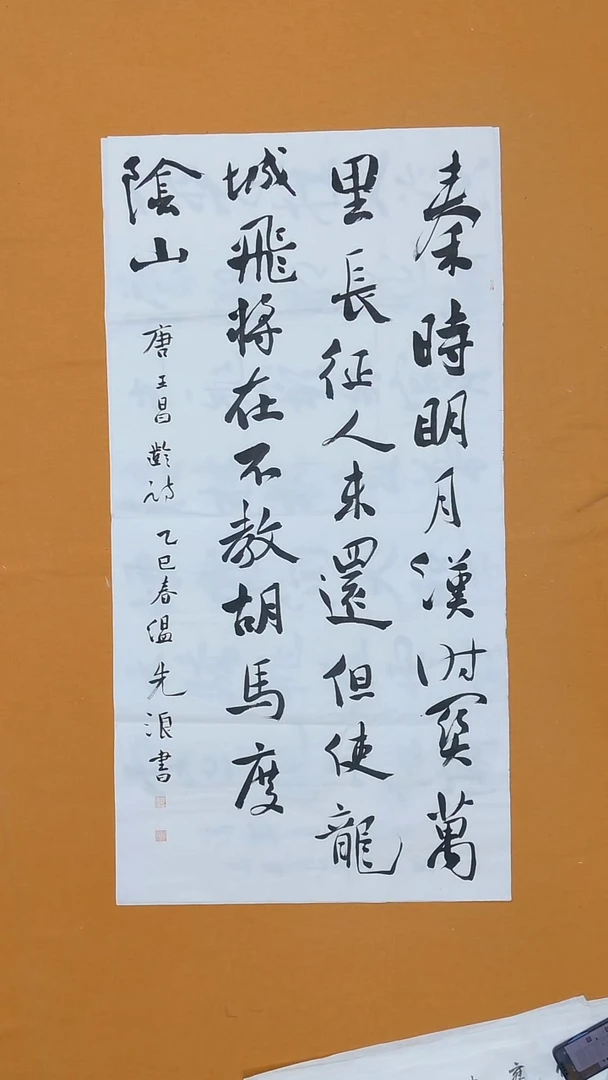 秦時明月漢时關萬
里長征人未還但使龍
城飛将在不教胡馬度
陰山
唐王昌齡詩 乙巳春温先浪書